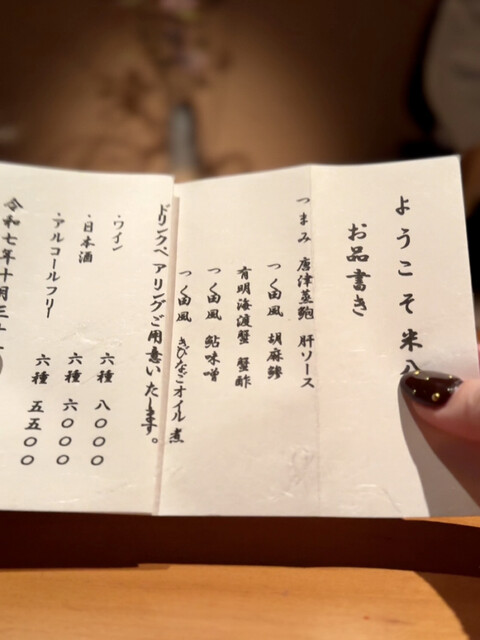 ようこそ 米八
お品書き
つまみ 唐津蒸鮑 肝ソース
つく田風 胡麻鯵
有明海渡蟹 蟹酢
つく田風 鮎味噌
つく田風 きびなごオイル煮
ドリンクペアリングご用意いたします。
・ワイン 六種 八〇〇〇
・日本酒 六種 六〇〇〇
・アルコールフリー 六種 五五〇〇
令和七年十月三十